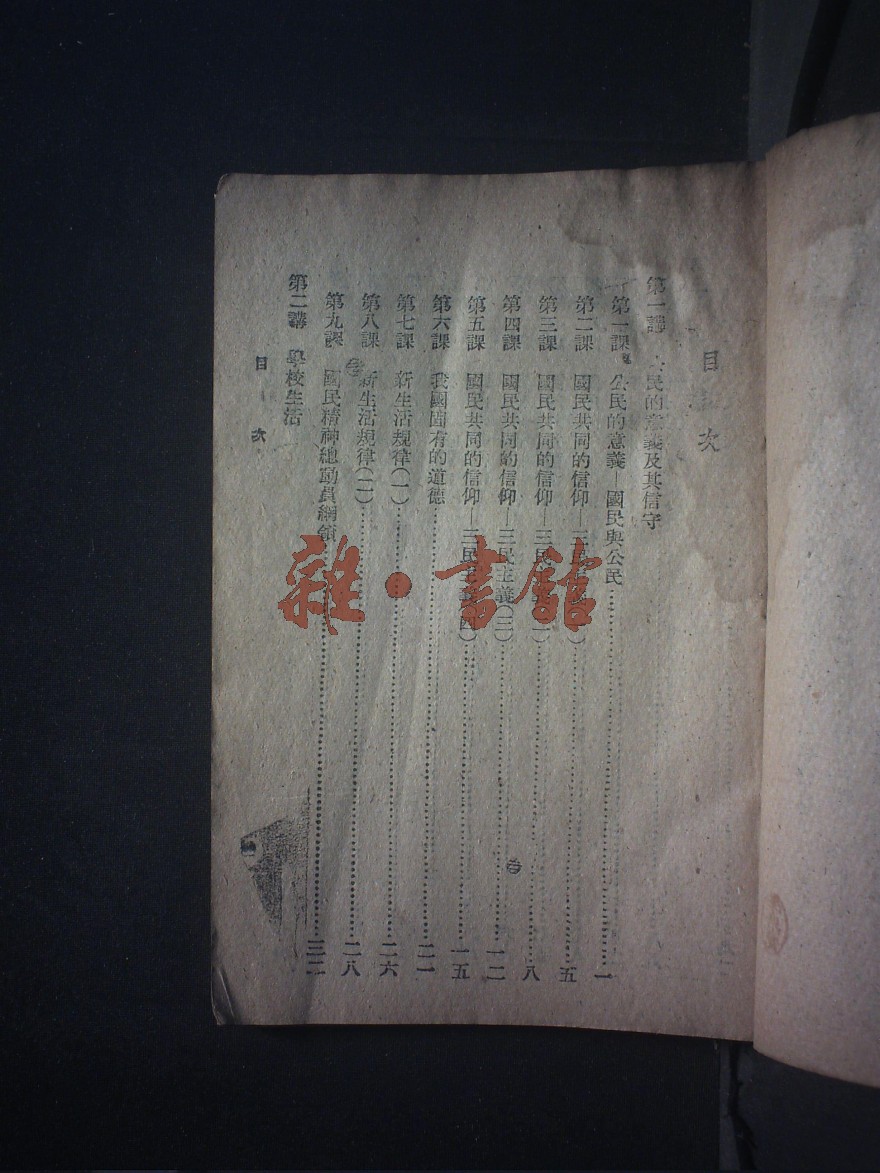 目次
第一講 公民的意義及其信守
第一課 公民的意義—國民與公民……一
第二課 國民共同的信仰—三民主義(一)……五
第三課 國民共同的信仰—三民主義(二)……八
第四課 國民共同的信仰—三民主義(三)……一二
第五課 國民共同的信仰—三民主義(四)……一五
第六課 我國固有的道德……二一
第七課 新生活規律(一)……二六
第八課 新生活規律(二)……二八
第九課 國民精神總動員綱領……三二
第二講 學校生活
目次
雜·書館